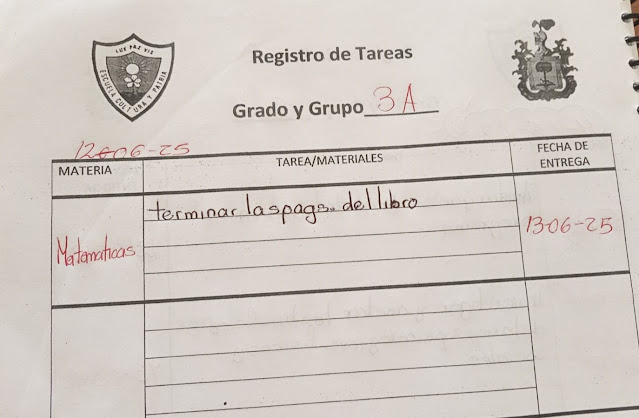 LUX PAX VIS
ESCUELA CULTURA Y PATRIA
Registro de Tareas
Grado y Grupo 3A
12-06-25
MATERIA
TAREA/MATERIALES
FECHA DE
ENTREGA
Matematicas
terminar las pags. del libro
13-06-25